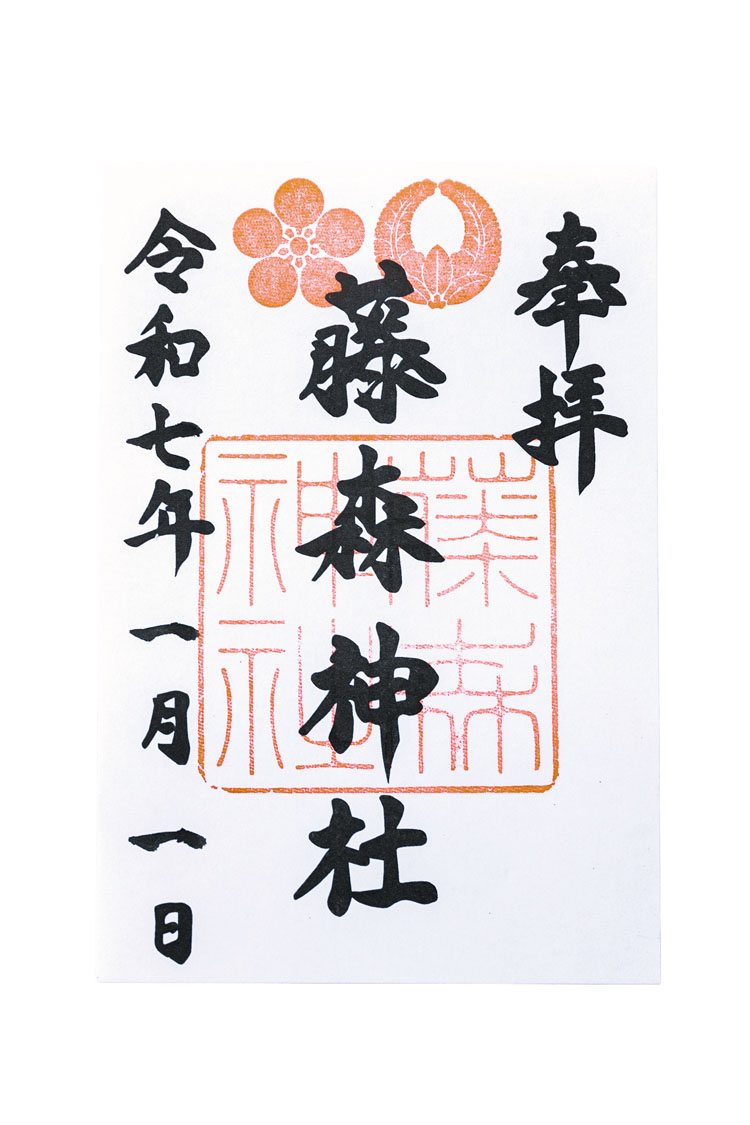 奉拝
藤森神社
藤森神社
令和七年一月一日